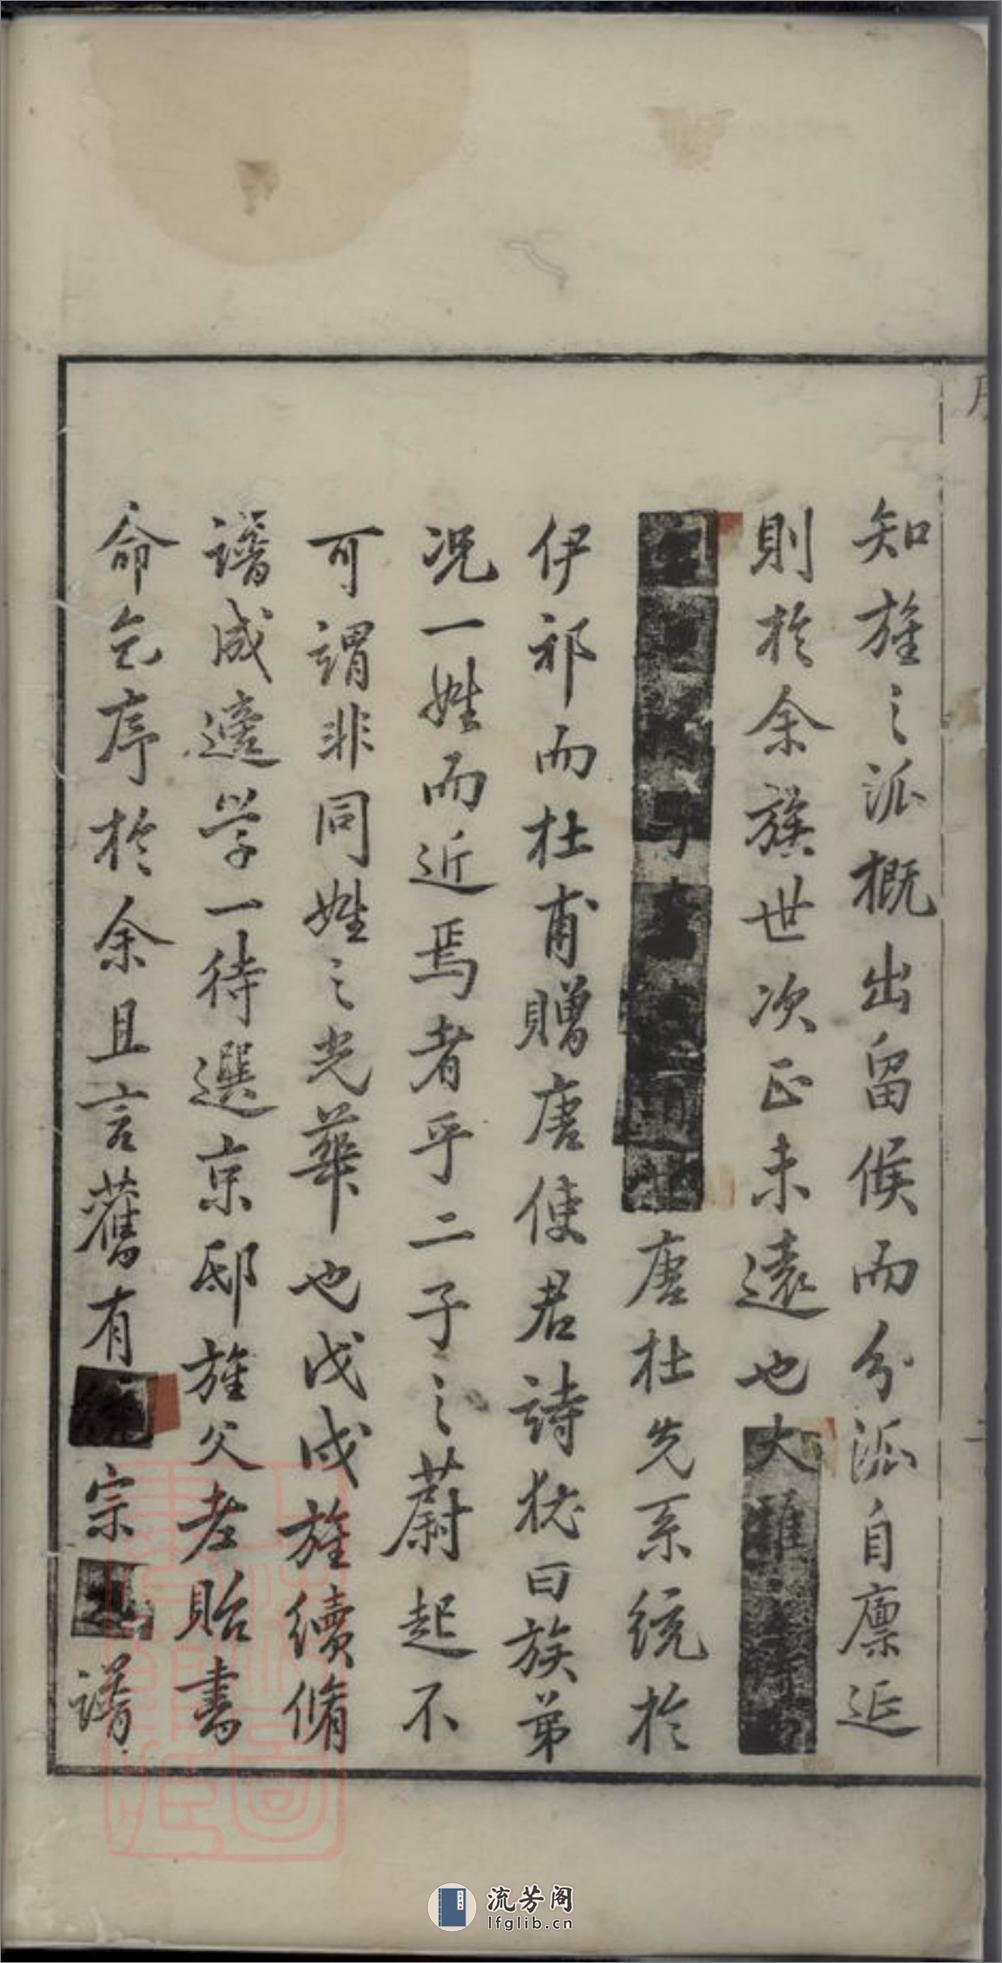 知旌之派概出留候而分派自廪延
則於余族世次正未遠也大雅
唐杜先系統於
伊祁而杜甫贈唐使君詩猶曰族弟
况一姓而近焉者乎二子之蔚起不
可謂非同姓之光華也戊戌旌續脩
譜成適学一待選京邸旌父孝貽書
命乞序於余且言舊有宗譜
流芳阁
lfglib.cn